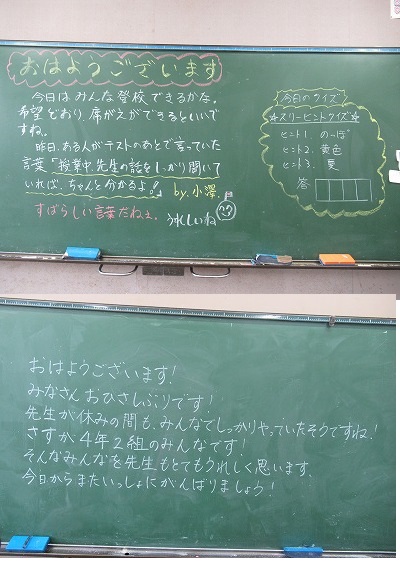 おはようございます
今日はみんな登校できるかな。
希望どおり、席がえができるといいで
すね。
昨日、ある人がテストのあとで言っていた
言葉「授業中、先生の話をしっかり聞いて
いれば、ちゃんと分かるよ!」 by.小澤.
すばらしい言葉だねぇ。 うれしいね
今日のクイズ
☆スリーヒントクイズ☆
ヒント1. のっぽ
ヒント2. 黄色
ヒント3. 夏
答
おはようございます!
みなさんおひさしぶりです!
先生が休みの間も、みんなでしっかりやっていたそうですね!
さすが4年2組のみんなです!
そんなみんなを先生もとてもうれしく思います。
今日からまたいっしょにがんばりましょう!